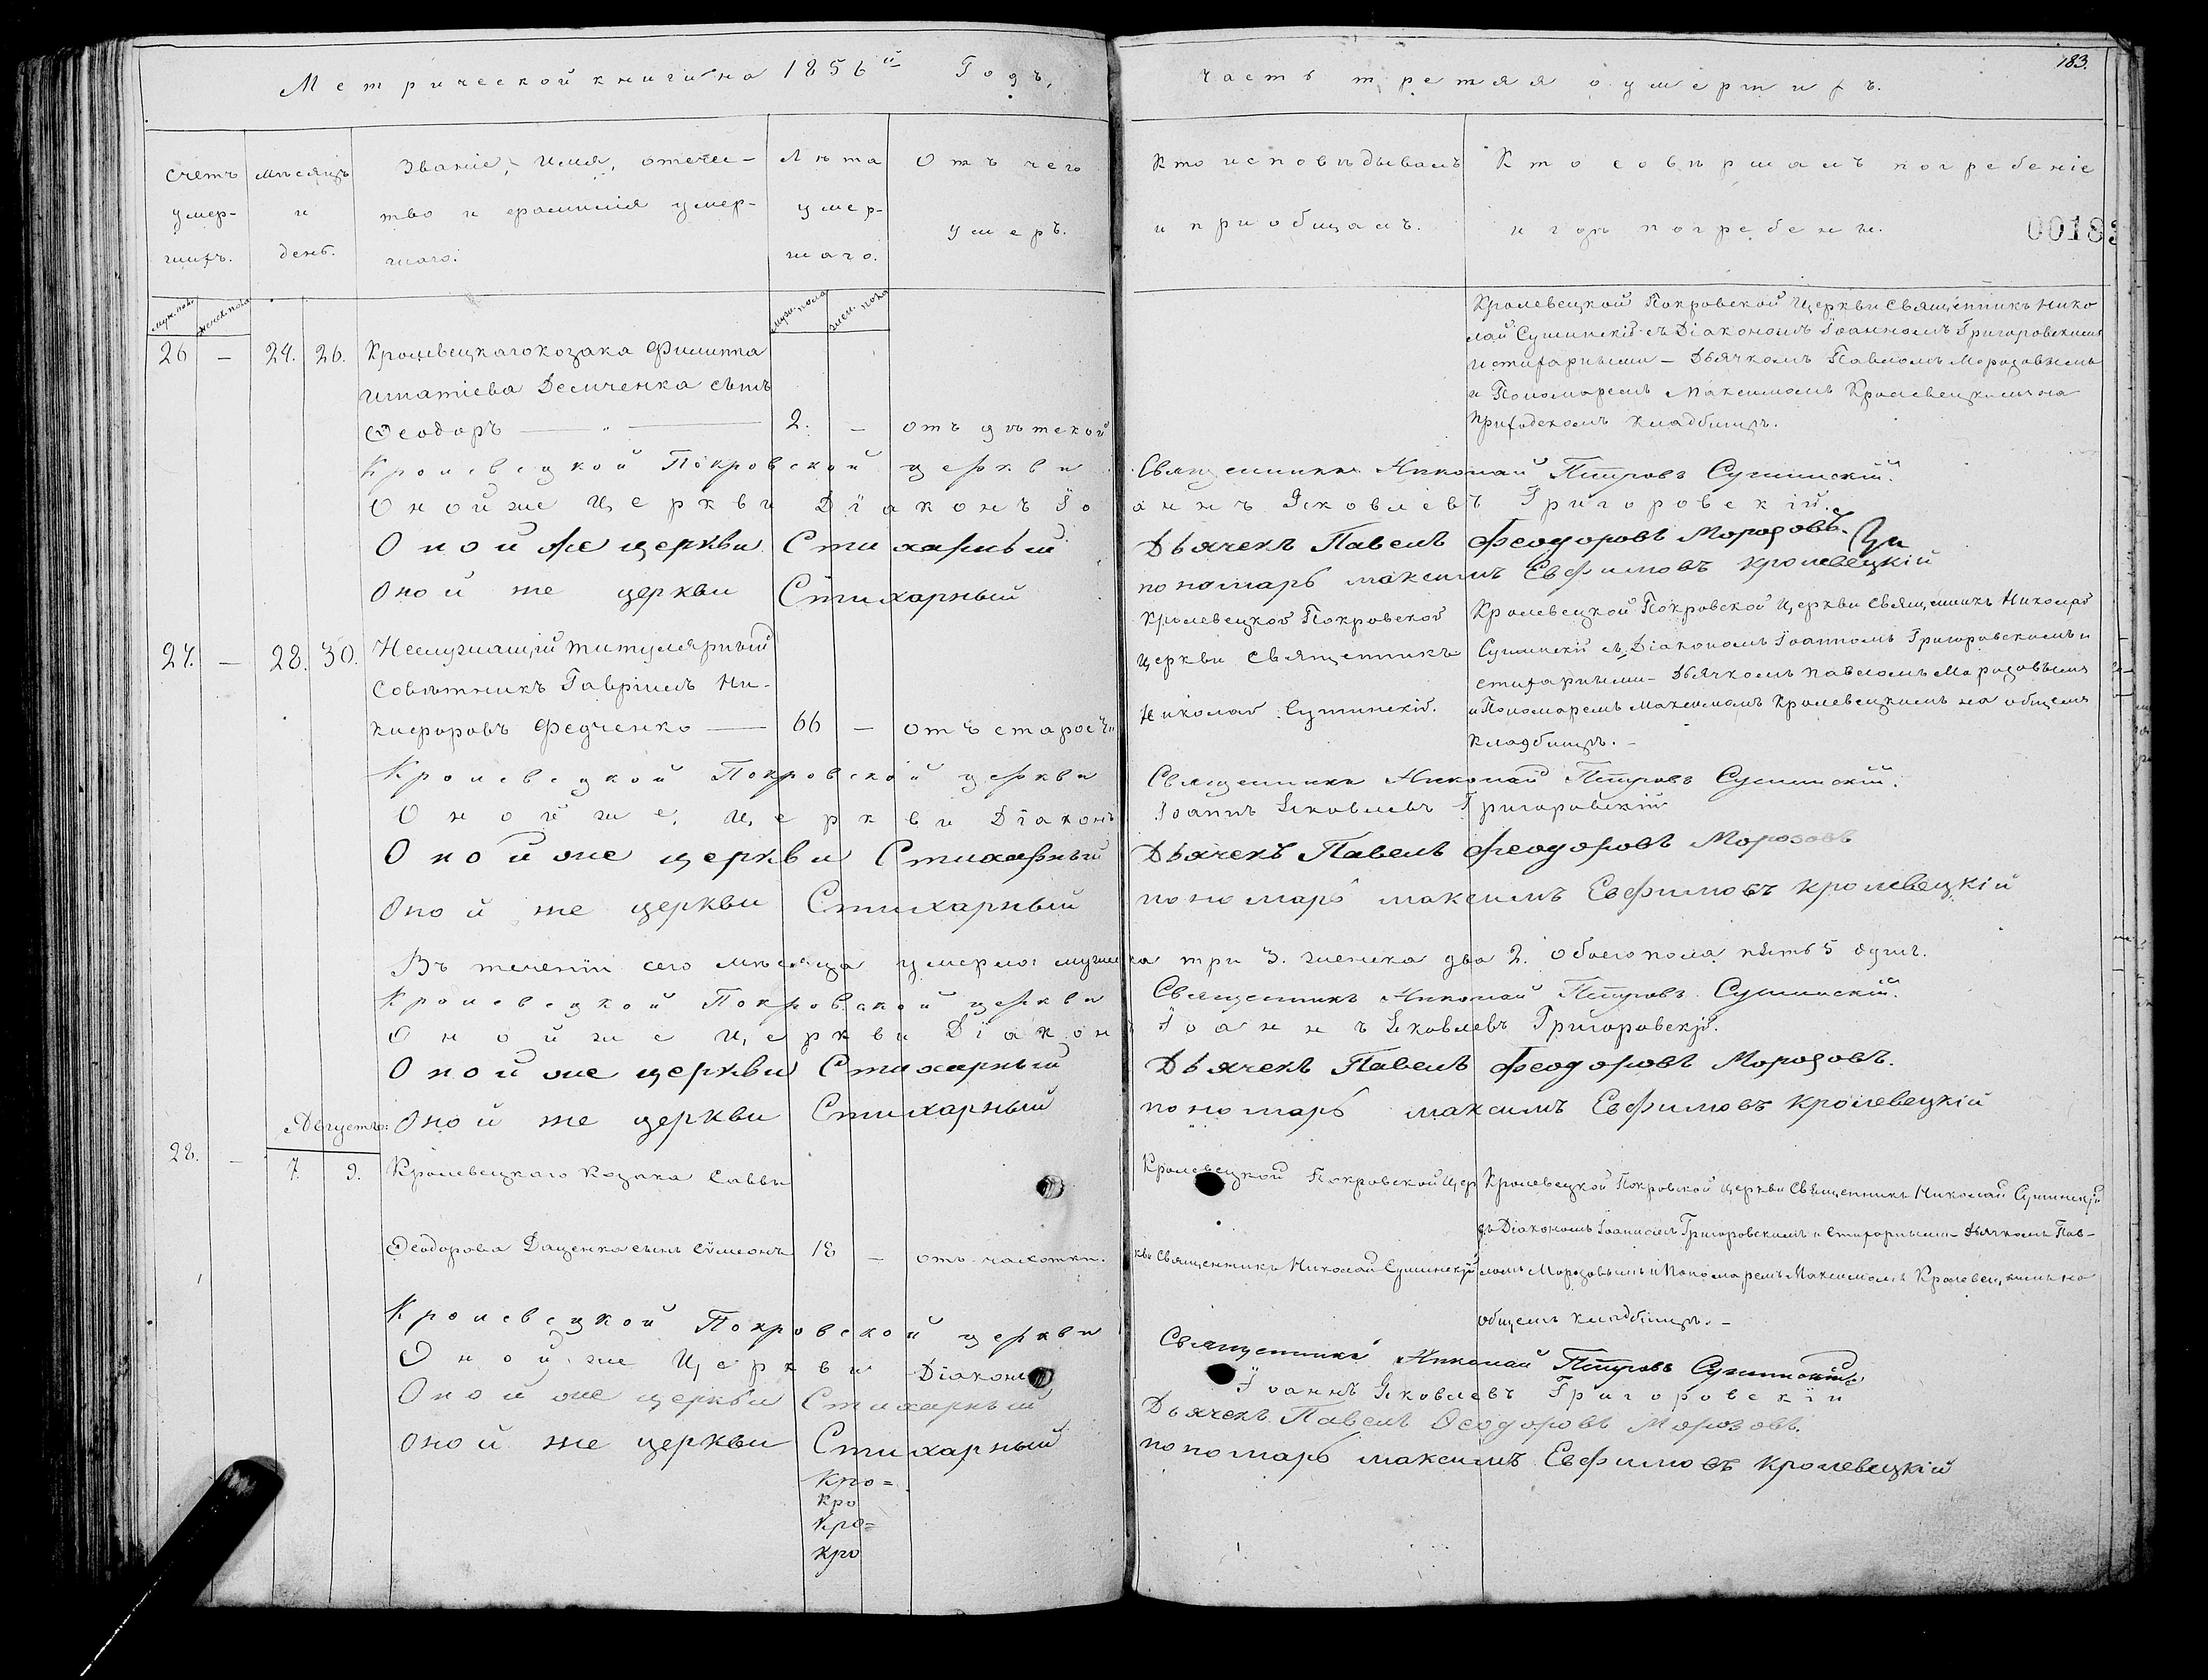 Метрической книги на 1856й Годъ,
Счетъ умер-
шихъ.
Мѣсяцъ
и
день.
Званіе, имя, отечес-
тво и фамилія умер-
шаго.
Лѣта
умер-
шаго.
Отъ чего
умеръ.
муж. пола
женск. пола
муж. пола
жен. пола
26 — 24. 26. Кролевецкаго козака Филиппа
Игнатіева Демченка сынъ
Ѳеодоръ — 2. — отъ дѣтской
Кролевецкой Покровской церкви
Оной же Церкви Діаконъ Іо
Оной же церкви Стихарный
Оной же церкви Стихарный
27. — 28. 30. Неслужащій титулярный
Совѣтникъ Гавріилъ Ни-
кифоровъ Федченко — 66 — отъ старости
Кролевецкой Покровской церкви
Оной же Церкви Діаконъ
Оной же церкви Стихарный
Оной же церкви Стихарный
Въ теченіи сего мѣсяца умерло: мужес
Кролевецкой Покровской церкви
Оной же Церкви Діакон
Оной же церкви Стихарный
Августъ: Оной же церкви Стихарный
28. — 7. 9. Кролевецкаго Козака Саввы
Ѳеодорова Даценка сынъ Сѵмеонъ 18 — отъ чахотки.
Кролевецкой Покровской церкви
Оной же Церкви Діаконъ
Оной же церкви Стихарный
Оной же церкви Стихарный
Кро=
Кро
Кро=
Кро
183.
Часть третяя о умершихъ.
Кто исповѣдывалъ
и пріобщалъ.
Кто совершалъ погребеніе
и гдѣ погребены.
00183
Кролевецкой Покровской Церкви Священникъ Нико
лай Сушинскій съ Діакономъ Іоанномъ Григоровскимъ
и стихарными — Дьячкомъ Павломъ Морозовымъ
и Пономаремъ Максимомъ Кролевецкимъ на
приходскомъ кладбищѣ.
Священникъ Николай Петровъ Сушинскій.
аннъ Яковлевъ Григоровскій.
Дьячекъ Павелъ Феодоровъ Морозовъ.
пономарь максимъ Евфимовъ кролевецкій
Кролевецкой Покровской
Церкви Священникъ
Николай Сушинскій.
Кролевецкой Покровской Церкви Священникъ Николай
Сушинскій съ Діакономъ Іоанномъ Григоровскимъ и
стихарными — Дьячкомъ Павломъ Морозовымъ
и Пономаремъ Максимомъ Кролевецкимъ на общемъ
кладбищѣ. —
Священникъ Николай Петровъ Сушинскій.
Іоаннъ Яковлевъ Григоровскій
Дьячекъ Павелъ Феодоровъ Морозовъ
пономарь максимъ Евфимовъ кролевецкій
ка три 3. женска два 2. обоего пола пять 5 душъ.
Священникъ Николай Петровъ Сушинскій.
Іоаннъ Яковлевъ Григоровскій.
Дьячекъ Павелъ Феодоровъ Морозовъ.
пономарь максимъ Евфимовъ кролевецкій
Кролевецкой Покровской Цер
кви Священникъ Николай Сушинскій
Кролевецкой Покровской Церкви Священникъ Николай Сушинскій
съ Діакономъ Іоанномъ Григоровскимъ и Стихарными — Дьячкомъ Пав-
ломъ Морозовымъ и Пономаремъ Максимомъ Кролевецкимъ на
общемъ кладбищѣ. —
Священникъ Николай Петровъ Сушинскій
Іоаннъ Яковлевъ Григоровскій
Дьячекъ Павелъ Ѳеодоровъ Морозовъ.
пономарь максимъ Евфимовъ кролевецкій